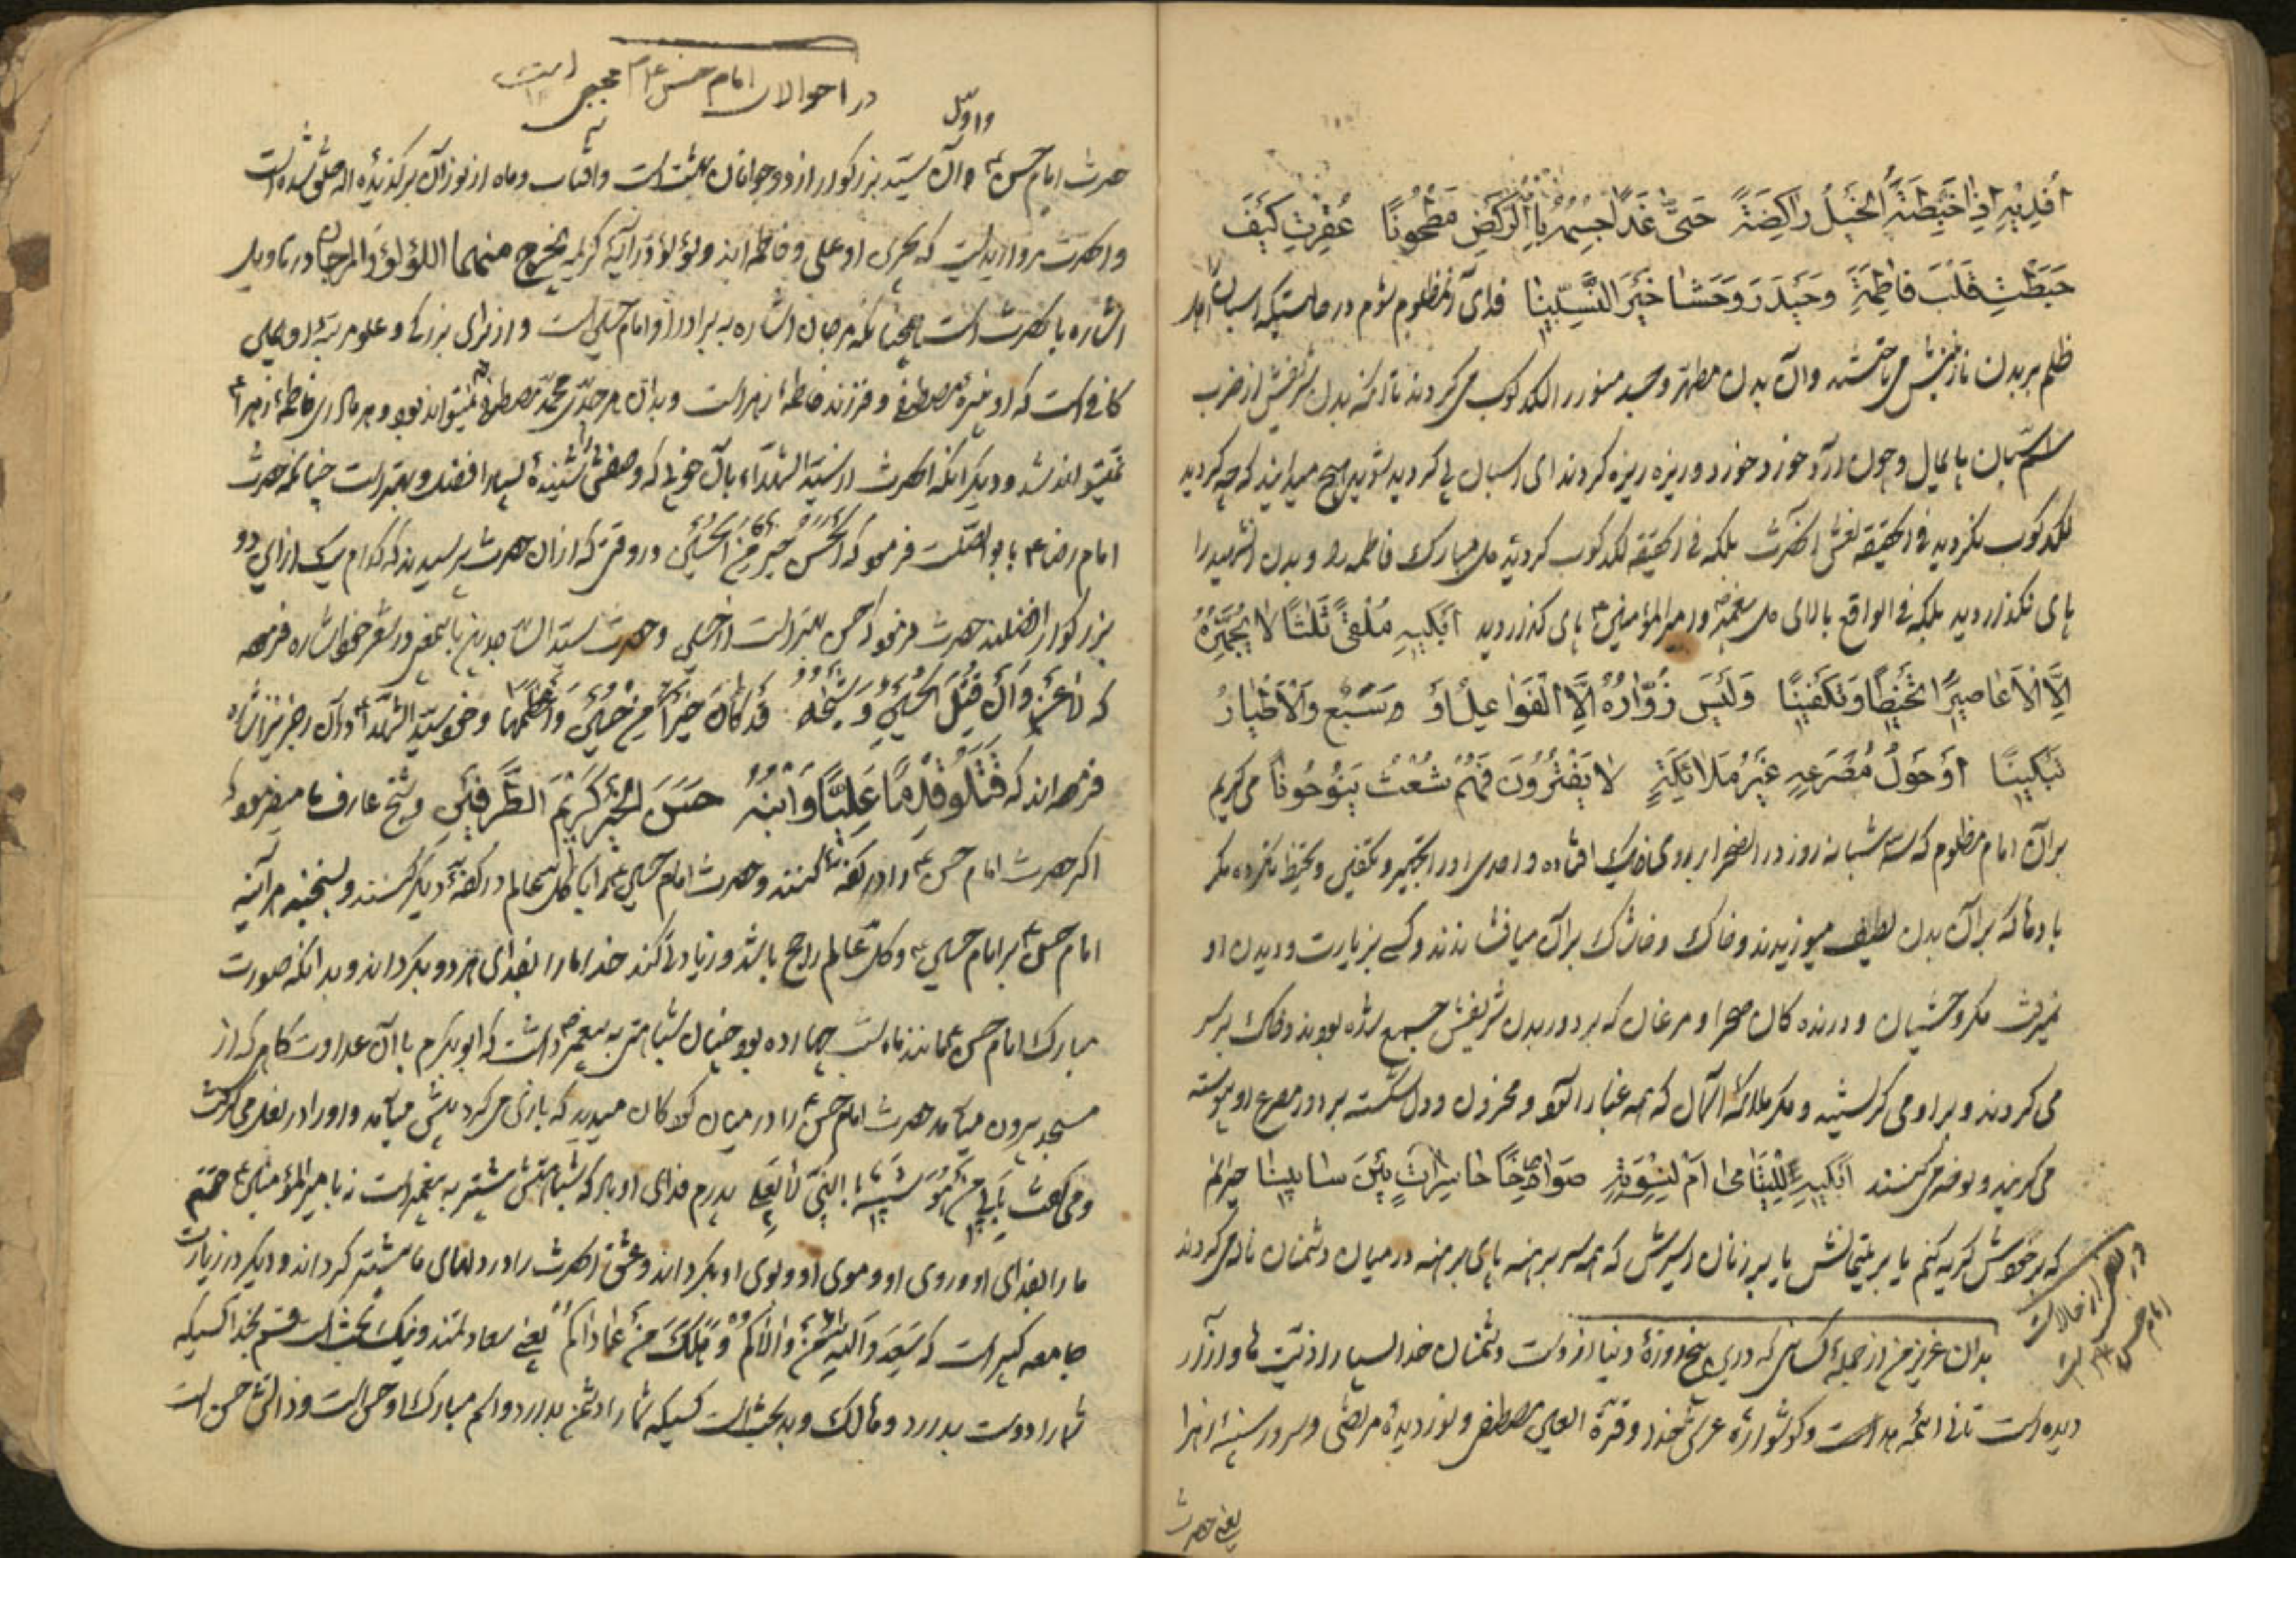 اُفدِیهِ اِذا خَبَطَتهُ الخَیلُ راکِضَةً حَتّی غَدا جِسمُهُ بِالرَّکضِ مَطحُونًا عُقِرتِ کَیفَ
خَبَطتِ قَلبَ فاطِمَةٍ وَحَیدَرَ وَحَشا خَیرِ النَّبِیّینا فدای آن مظلوم شوم در حالتیکه اسبان اهل
ظلم بر بدن نازنینش می تاختند وان بدن مطهر و جسد منور را لگد کوب می کردند تا آنکه بدن شریفش از ضرب
سم اسبان پایمال و چون آرد خورد خورد و ریزه ریزه کردند ای اسبان پی کردید شوید هیچ میدانید که چه کردید
لگد کوب نکردید فی الحقیقه نعش آنحضرت بلکه فی الحقیقه لگد کوب کردید دل مبارک فاطمه را و بدن انشهید را
پای نگذاردید بلکه فی الواقع بالای دل پیغمبر و امیرالمؤمنین پای گذاردید اَبکیهِ مُلقیً ثَلثًا لا یُجَهِّزُهُ
اِلَّا الاَعاصیرُ تَحنیطًا وَتَکفینًا وَلَیسَ زُوّارُهُ اِلّا الفَوا عِیلُ اَو وَسَبُع وَالاَطیارُ
تَبکینًا اَو حَولَ مَصرَعِهِ غَیرُ مَلائِکَةٍ لا یَفتُرُونَ فَهُم شُعثُ یَنُوحُونا می گریم
بر آن امام مظلوم که سه شبانه روز در انصحرا بر روی خاک افتاده و احدی او را تجهیز و تکفین و تحنیط نکرده مگر
بادها که بر آن بدن لطیف میوزیدند و خاک و خاشاک بر آن میافشاندند و کسی بزیارت و دیدن او
نمیرفت مگر وحشیان و درنده کان صحرا و مرغان که بر دور بدن شریفش جمع شده بودند و خاک بر سر
می کردند و بر او می گریستند و مگر ملائکه آسمان که همه غبار آلود و محزون و دل شکسته بر دور مصرع او پیوسته
می گریند و نوحه می کنند اَبکیهِ لِلیَتامی اَم لِنِسوَتِهِ صَوارِخًا حاسِراتٍ بَینَ سابینا حیرانم
که بر خودش گریه کنم یا بر یتیمانش یا بر زنان اسیرش که همه سر برهنه پای برهنه در میان دشمنان ناله می کردند
در بعض از حالات
امام حسن ع است
بدان عزیز من از جمله کسانی که در این پنج روزهٔ دنیا از دست دشمنان خدا بسیار اذیت ها و آزار
دیده است ثانی ائمه هداست و گوشوارهٔ عرش خدا و قرة العین مصطفی و نور دیدهٔ مرتضی و سرور سینهٔ زهرا
یعنی حضرت
در احوالات امام حسن ع مجتبی است
و اوّل
حضرت امام حسن ع و آن سیّد بزرگوار از دو جوانان بهشت است و افتاب و ماه از نور آن برگزیده اله خلق شده است
و انحضرت مرواریدیست که بحری او علی و فاطمه اند و لؤلؤ در آیه کریمه یخرج منهما اللؤلؤ والمرجان در تاویل
اشاره بانحضرت است همچنانکه مرجان اشاره به برادر او امام حسین است و از برای بزرگی و علو مرتبهٔ او همین
کافی است که او نبیرهٔ مصطفی و فرزند فاطمه زهراست و بدان هر جدّی محمّد مصطفی نمیتواند بود و هر مادری فاطمه زهرا
نمیتواند شد و دیگر انکه انحضرت از سیّد الشهداء بآن خوبی که وصفش را شنیدهٔ بسیار افضل و بهتر است چنانکه حضرت
امام رضا ع با بو الصلت فرمود که اَلحَسَنُ خَیرٌ مِنَ الحُسَین و در وقتی که از ان حضرت پرسیدند که کدام یک از این دو
بزرگوار افضلند حضرت فرمود حسن بهتر است از حسین و حضرت سید الساجدین باینمعنی در شعر خود اشاره فرموده
که لا غَروَ اِن قُتِلَ الحُسَین وَ شَیخُهُ قَد کانَ خَیرًا مِن حُسَینٍ وَ اَعظَما و خود سیّد الشهدا در آن رجز نیز اشاره
فرموده اند که قَتَلُوا قِدمًا عَلِیًّا وَ ابنَهُ حَسَنَ الخَیرِ کَرِیمَ الطَّرَفَینِ و شیخ عارف ما میفرمودند
اگر حضرت امام حسن را در کفه کنند و حضرت امام حسین ع را با کل عالم در کفهٔ دیگر کنند و بسنجند هر آینه
امام حسن بر امام حسین و کل عالم راجح باشد و زیادتی کند خدا ما را بفدای هر دو بگرداند و بدانکه صورت
مبارک امام حسن ع مانند ماه شب چهارده بود چنان شباهتی به پیغمبر داشت که ابوبکر با آن عداوت گاهی که از
مسجد بیرون میامد حضرت امام حسن را در میان کودکان میدید که بازی می کرد پیش میامد و او را در بغل می گرفت
و می گفت بِاَبی مَن هُوَ شَبیهٌ بِالنَّبیّ لا بِعَلیّ پدرم فدای او باد که شباهتش بیشتر به پیغمبر است نه بامیرالمؤمنین ع
ما را بفدای او و روی او و موی او و بوی او بگرداند و عشق انحضرت را در دلهای ما بیشتر گرداند و دیگر در زیارت
جامعه کبیر است که سَعِدَ وَاللهِ مَن والاکُم وَ هَلَکَ مَن عاداکُم یعنی سعادتمند و نیک بخت است قسم بخدا کسیکه
شما را دوست بدارد و هالک و بدبخت است کسیکه شما را دشمن بدارد و اسم مبارک او حسن است و ذاتش حسن است